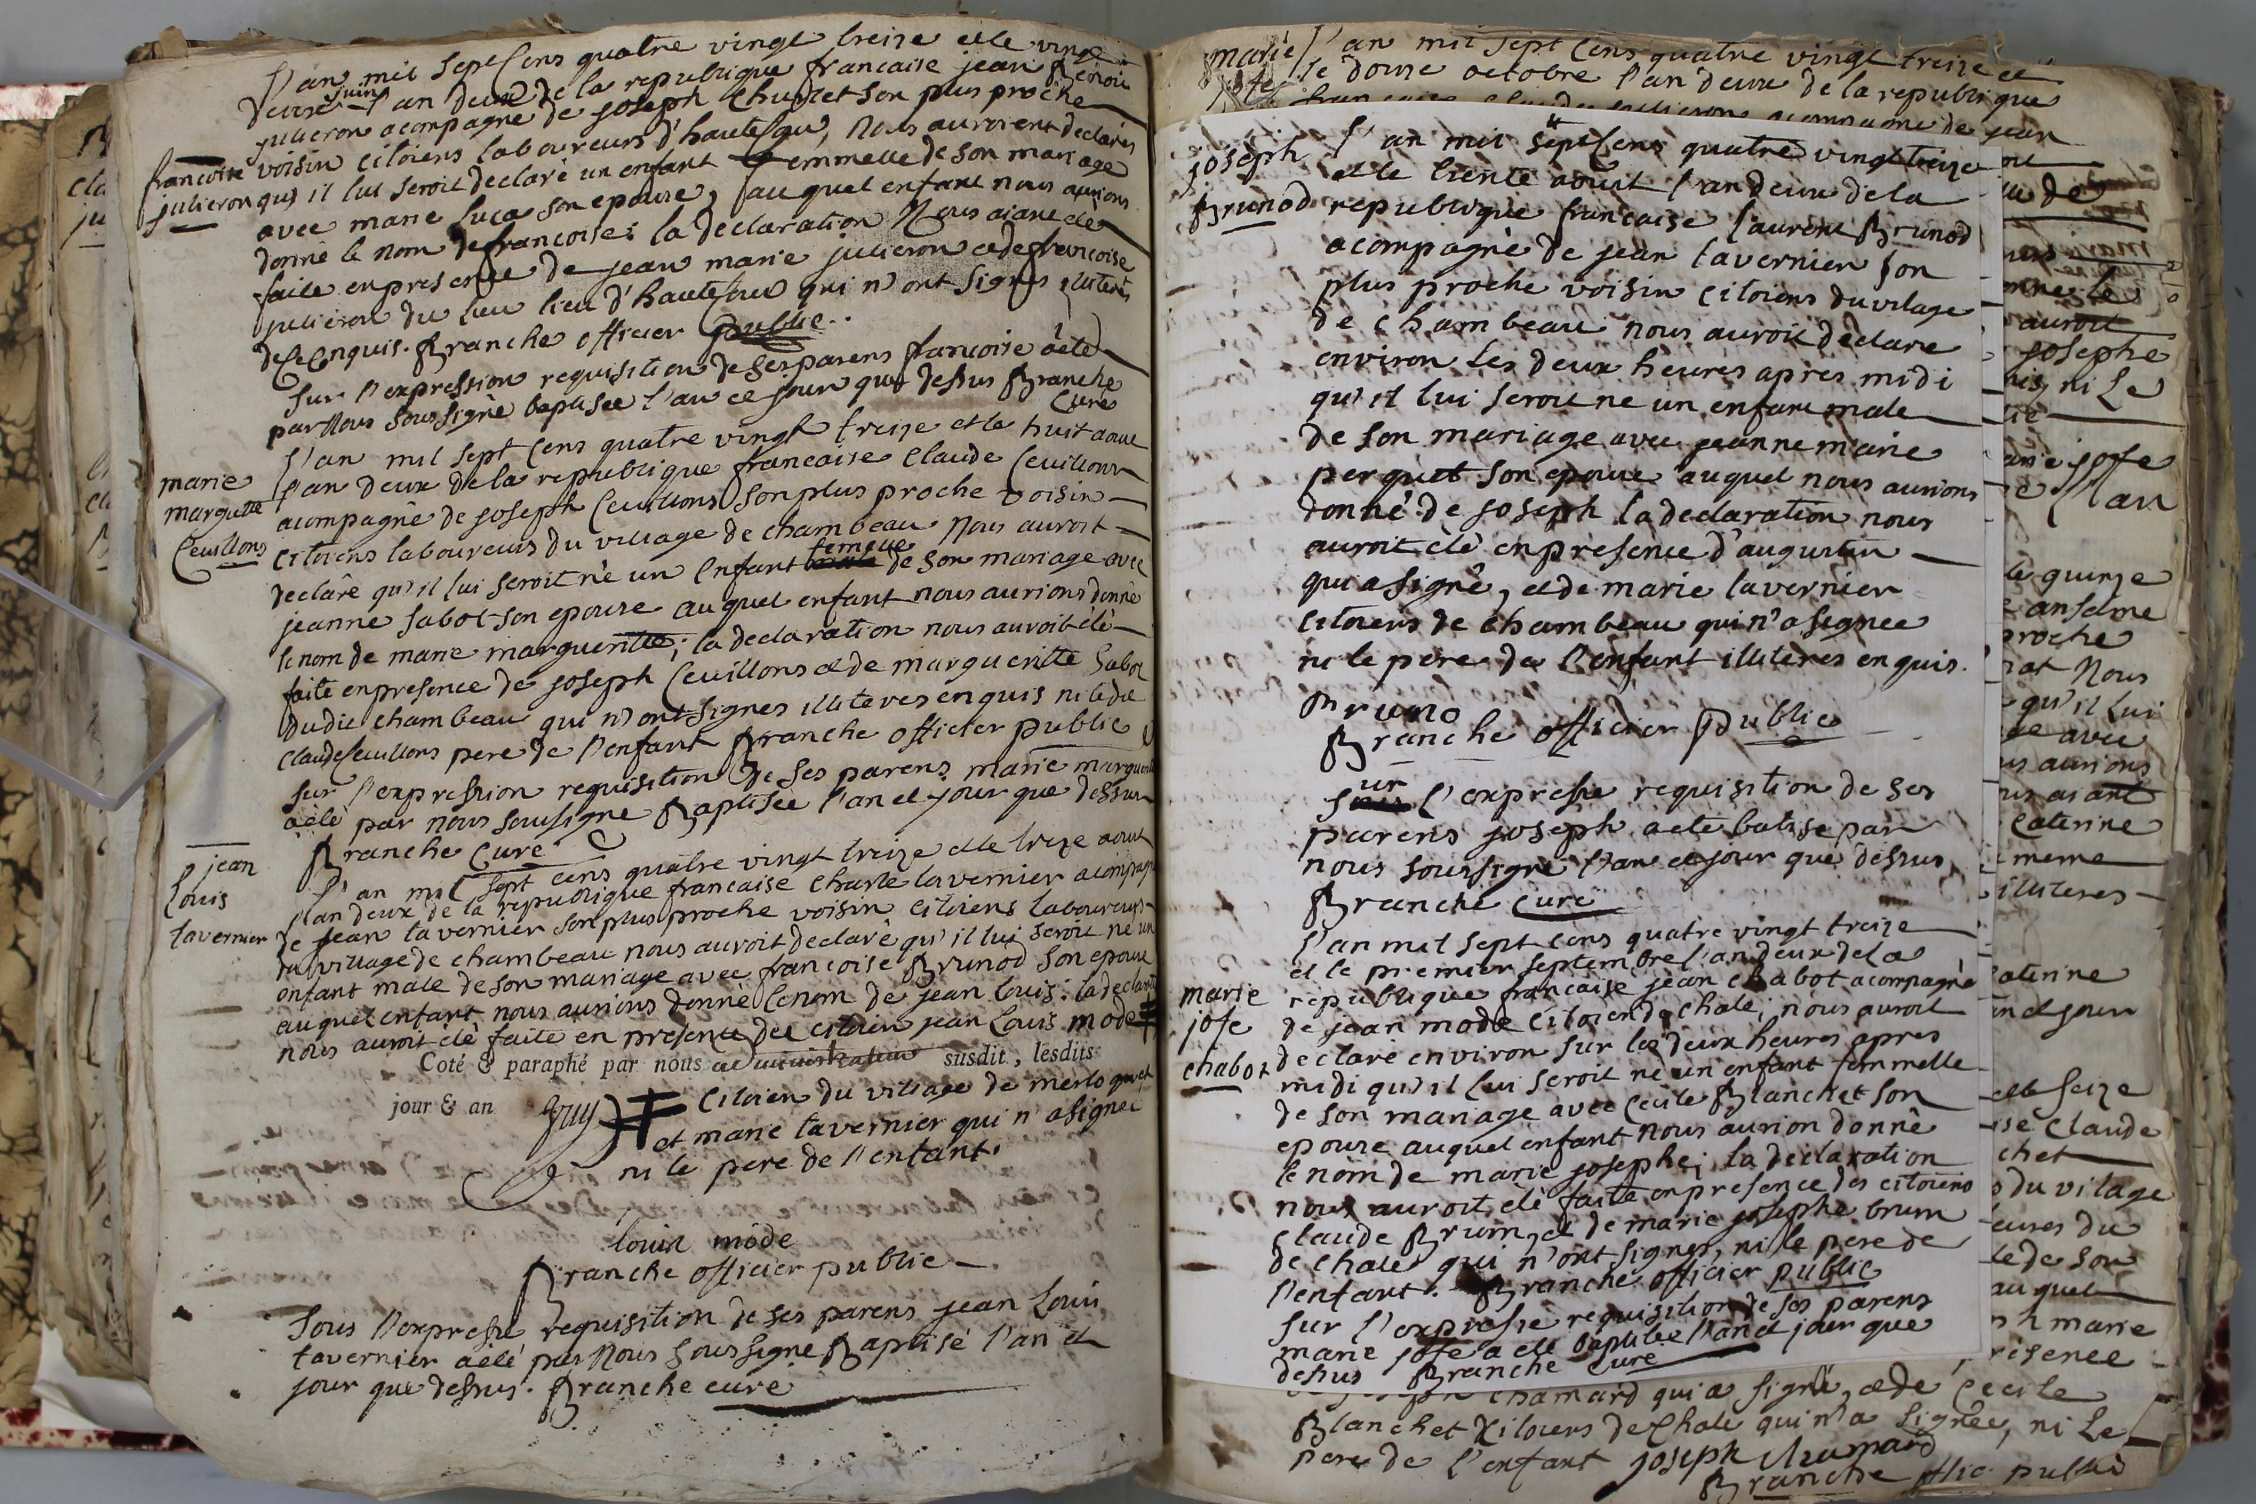 L'an mil sept Cens quatre vingt treize et le vingt
deuxe juin l'an deux de la republique francaise jean Benoit
julieron acompagne de joseph Chuzlet son plus proche
francoise voisin Citoiens laboureurs d'hautecour, Nous auroient declarés
julieron qu'il lui seroit declaré un enfant femmelle de son mariage
avec marie Luca son epouse, auquel enfant nous aurions
donné le nom de francoise; la declaration Nous aiant eté
faite en presence de jean marie julieron et de francoise
julieron du lieu d'hautecour qui n'ont signés illiterés
de ce enquis. Branche officier public.
Sur l'expression requisition de ses parens francoise a eté
par Nous soussigné baptisée l'an et jour que dessus Branche
Curé
L'an mil sept Cens quatre vingt treize et le huit aout
marie
margueritte
Ceuillons
l'an deux de la republique francaise Claude Ceuillons
acompagné de joseph Ceuillons son plus proche voisin
Citoiens laboureurs du village de chambeau Nous auroit
declaré qu'il lui seroit né un enfant femelle de son mariage avec
jeanne sabot son epouse auquel enfant nous aurions donné
le nom de marie margueritte; la declaration nous auroit été
faite en presence de joseph Ceuillons et de margueritte Sabot
dudit chambeau qui n'ont signés illiteres enquis ni le dit
Claude Ceuillons pere de l'enfant Branche officier public
Sur l'expression requisition de ses parens marie marguerit
a eté par nous soussigné Baptisée l'an et jour que dessus
Branche Curé
jean
Louis
tavernier
L'an mil sept cens quatre vingt treize et le treze aout
l'an deux de la republique francaise Charle tavernier acompagné
de jean tavernier son plus proche voisin Citoiens laboureurs
du village de chambeau nous auroit declaré qu'il lui seroit né un
enfant male de son mariage avec francoise Brunod son epouse
auquel enfant nous aurions donné le nom de jean Louis: la declarat
nous auroit été faite en presence du citoien jean Louis mode ‡
Coté & paraphé par nous administrateur susdit, lesdits
jour & an Guy ‡ Citoien du village de merlo
et marie tavernier qui n'a signée
ni le pere de l'enfant.
louis mode
Branche officier public
Sous l'expresse requisition de ses parens jean Louis
tavernier a eté par Nous soussigné Baptisé l'an et
jour que dessus. Branche curé
marie L'an mil sept Cens quatre vingt treize et
jose le douze octobre l'an deux de la republique
joseph
Brunod
L'an mil sept Cens quatre vingt treize
et le trente aout l'an deux de la
republique francaise laurent Brunod
acompagné de jean tavernier son
plus proche voisin Citoiens du vilage
de chambeau nous auroit declare
environ les deux heures apres midi
qu'il lui seroit ne un enfant male
de son mariage avec jeanne marie
perquet son epouse auquel nous aurions
donné de joseph la declaration nous
auroit été en presence d'augustin
qui a signé, et de marie tavernier
Citoiens de chambeau qui n'a signee
ni le pere de l'enfant illiteres enquis.
Bruno
Branche officier public
Sur l'expresse requisition de ses
parens joseph a ete batise par
nous soussigné l'an et jour que dessus
Branche curé
marie
jose
chabot
L'an mil sept cens quatre vingt treize
et le premier septembre l'an deux de la
republique francaise jean chabot acompagné
de jean mode Citoien de chale, nous auroit
declaré environ sur les deux heures apres
midi qu'il lui seroit né un enfant femmelle
de son mariage avec Cecile Blanchet son
epouse auquel enfant nous aurion donné
le nom de marie josephe; la declaration
nous auroit été faite en presence des citoiens
Claude Brum, et de marie josephe brum
de chale qui n'ont signes, ni le pere de
l'enfant. Branche officier public
Sur l'expresse requisition de ses parens
marie jose a eté baptisée l'an et jour que
dessus Branche Curé
chamard qui a signé, et de Cecile
Blanchet Citoiens de Chale qui n'a signée, ni le
pere de l'enfant joseph chamard
Branche offic public